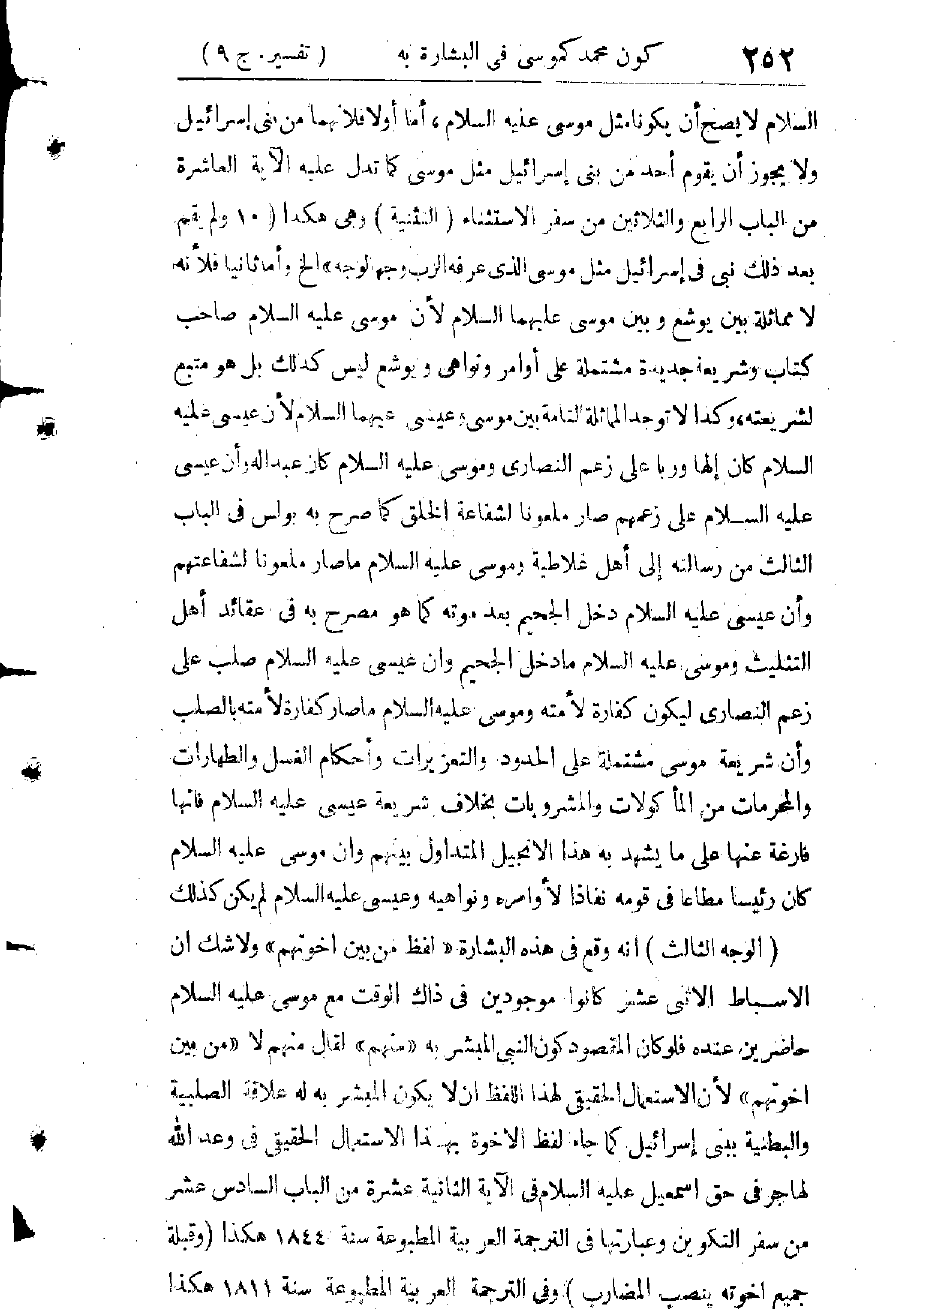 ٢٥٢ كون محمد كموسى فى البشارة به ( تفسير . ج ٩ )
السلام لا يصح أن يكونا مثل موسى عليه السلام ، أما أولا فلانهما من بنى إسرائيل
ولا يجوز أن يقوم أحد من بنى إسرائيل مثل موسى كما تدل عليه الآية العاشرة
من الباب الرابع والثلاثين من سفر الاستثناء ( التثنية ) وهى هكذا ( ١٠ ولم يقم
بعد ذلك نبي فى إسرائيل مثل موسى الذى عرفه الرب وجها لوجه » الخ وأما ثانيا فلأنه
لا مماثلة بين يوشع وبين موسى عليهما السلام لأن موسى عليه السلام صاحب
كتاب وشريعة جديدة مشتملة على أوامر ونواهى ويوشع ليس كذلك بل هو متبع
لشريعته، وكذا لا توجد المماثلة التامة بين موسى وعيسى عليهما السلام لأن عيسى عليه
السلام كان إلها وربا على زعم النصارى وموسى عليه السلام كان عبدا له وأن عيسى
عليه السلام على زعمهم صار ملعونا لشفاعة الخلق كما صرح به بولس فى الباب
الثالث من رسالته إلى أهل غلاطية وموسى عليه السلام ماصار ملعونا لشفاعتهم
وأن عيسى عليه السلام دخل الجحيم بعد موته كما هو مصرح به فى عقائد أهل
التثليث وموسى عليه السلام مادخل الجحيم وان عيسى عليه السلام صلب على
زعم النصارى ليكون كفارة لأمته وموسى عليه السلام ماصار كفارة لأمته بالصلب
وأن شريعة موسى مشتملة على الحدود والتعزيرات وأحكام الغسل والطهارات
والمحرمات من المأكولات والمشروبات بخلاف شريعة عيسى عليه السلام فانها
فارغة عنها على ما يشهد به هذا الانجيل المتداول بينهم وان موسى عليه السلام
كان رئيسا مطاعا فى قومه نفاذا لأوامره ونواهيه وعيسى عليه السلام لم يكن كذلك
( الوجه الثالث ) انه وقع فى هذه البشارة « لفظ من بين اخوتهم » ولا شك ان
الاسباط الاثنى عشر كانوا موجودين فى ذاك الوقت مع موسى عليه السلام
حاضرين عنده فلو كان المقصود كون النبي المبشر به «منهم» لقال منهم لا «من بين
اخوتهم» لأن الاستعمال الحقيقي لهذا اللفظ ان لا يكون المبشر به له علاقة الصلبية
والبطنية ببنى إسرائيل كما جاء لفظ الاخوة بهذا الاستعمال الحقيقى فى وعد الله
لهاجر فى حق اسمعيل عليه السلام فى الآية الثانية عشرة من الباب السادس عشر
من سفر التكوين وعبارتها فى الترجمة العربية المطبوعة سنة ١٨٤٤ هكذا (وقبلة
جميع اخوته ينصب المضارب ) وفى الترجمة العربية المطبوعة سنة ١٨١١ هكذا